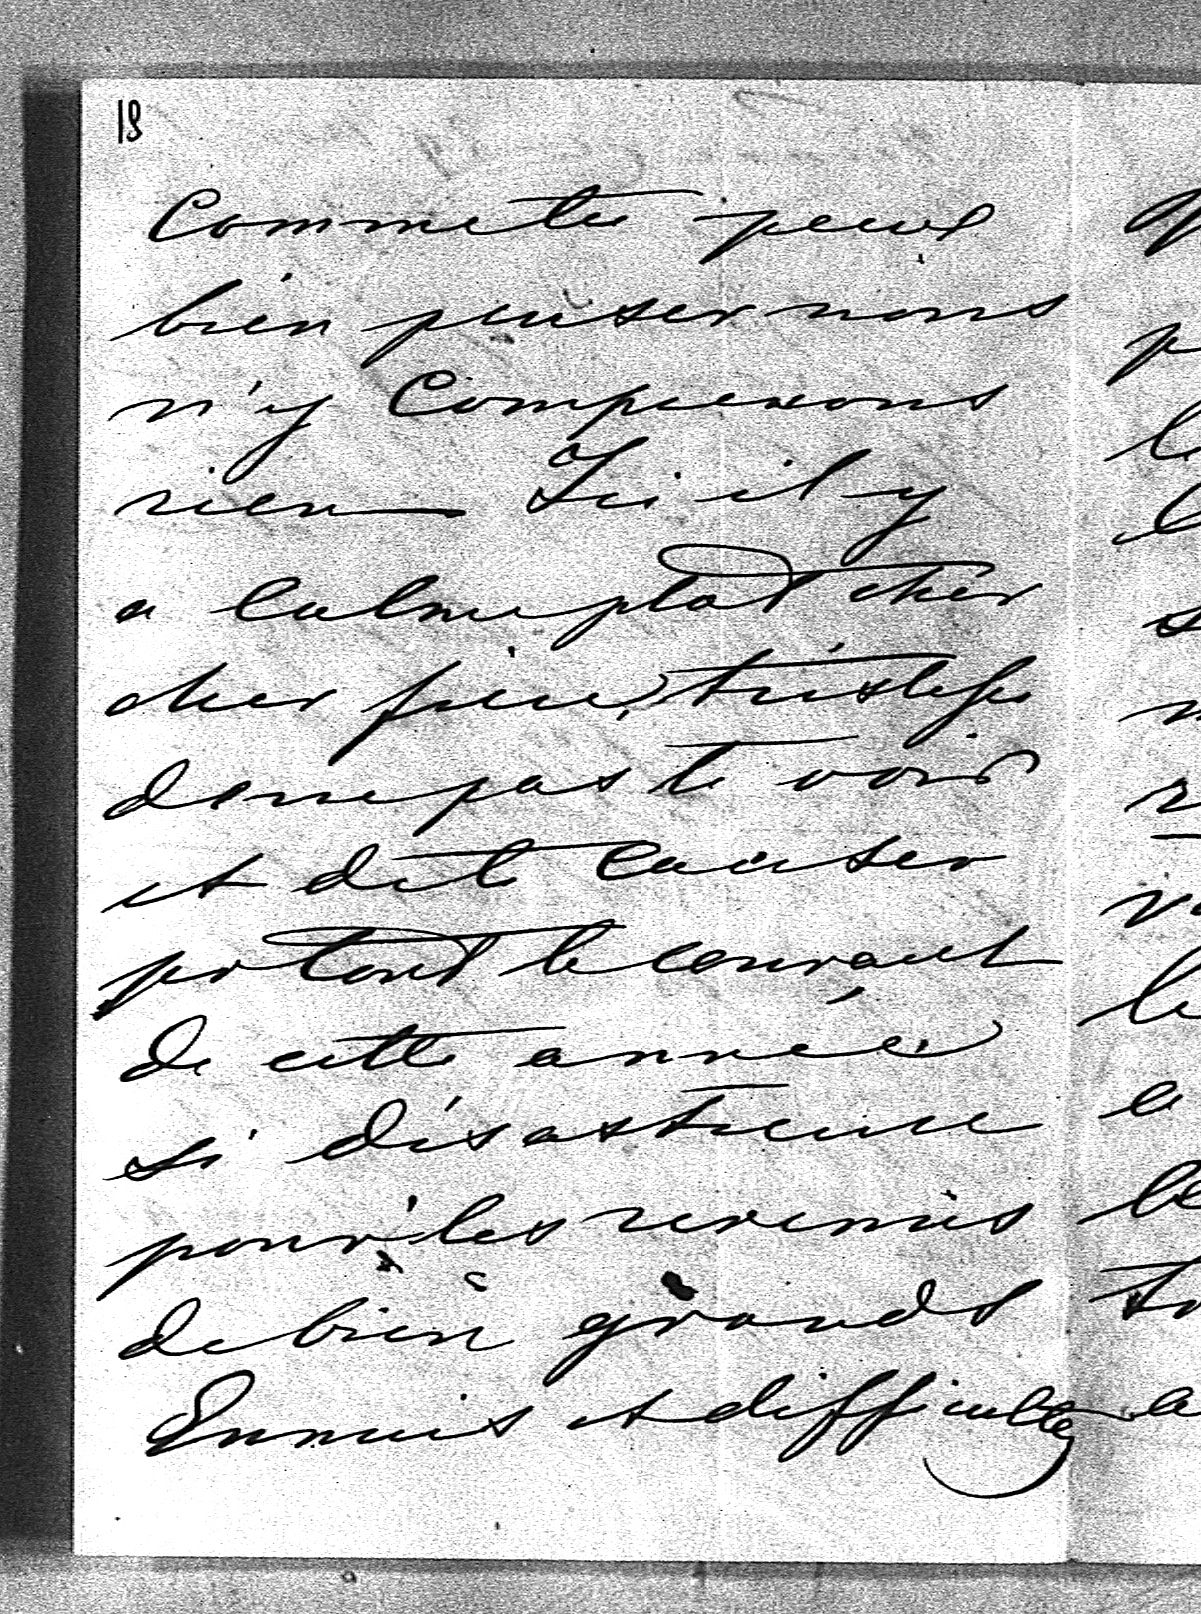 18
Comme tu peux
bien penser nous
n'y comprenons
rien – Ici il y
a calme plat cher
cher frère, tristesse
de ne pas te voir
et de te causer
pr tout le courant
de cette année
si désastreuse
pour les revenus
de bien grands
Ennuis et difficultés